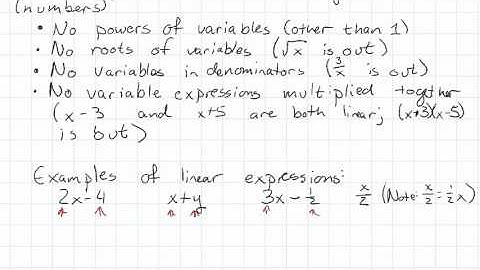 (numbers)
• No powers of variables (other than 1)
• No roots of variables (√x is out)
• No variables in denominators (3/x is out)
• No variable expressions multiplied together
(x-3 and x+5 are both linear; (x+3)(x-5)
is out)
Examples of linear expressions:
2x-4 x+y 3x-1/2 x/2 (Note: x/2=1/2x)